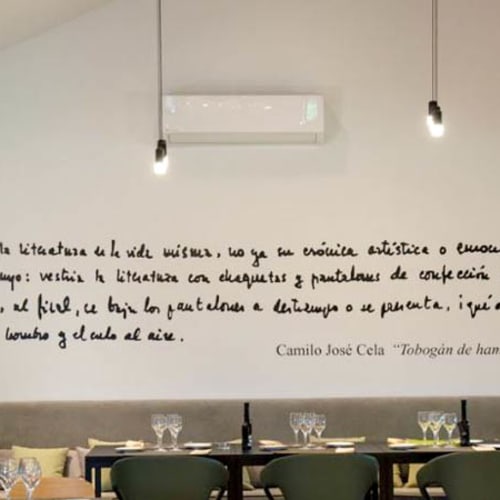 la literatura es la vida misma, no ya su crónica artística o emoci
vestir la literatura con chaquetas y pantalones de confección
al final, se baja los pantalones a destiempo o se presenta, ¡qué
hombro y el culo al aire.
Camilo José Cela “Tobogán de ham